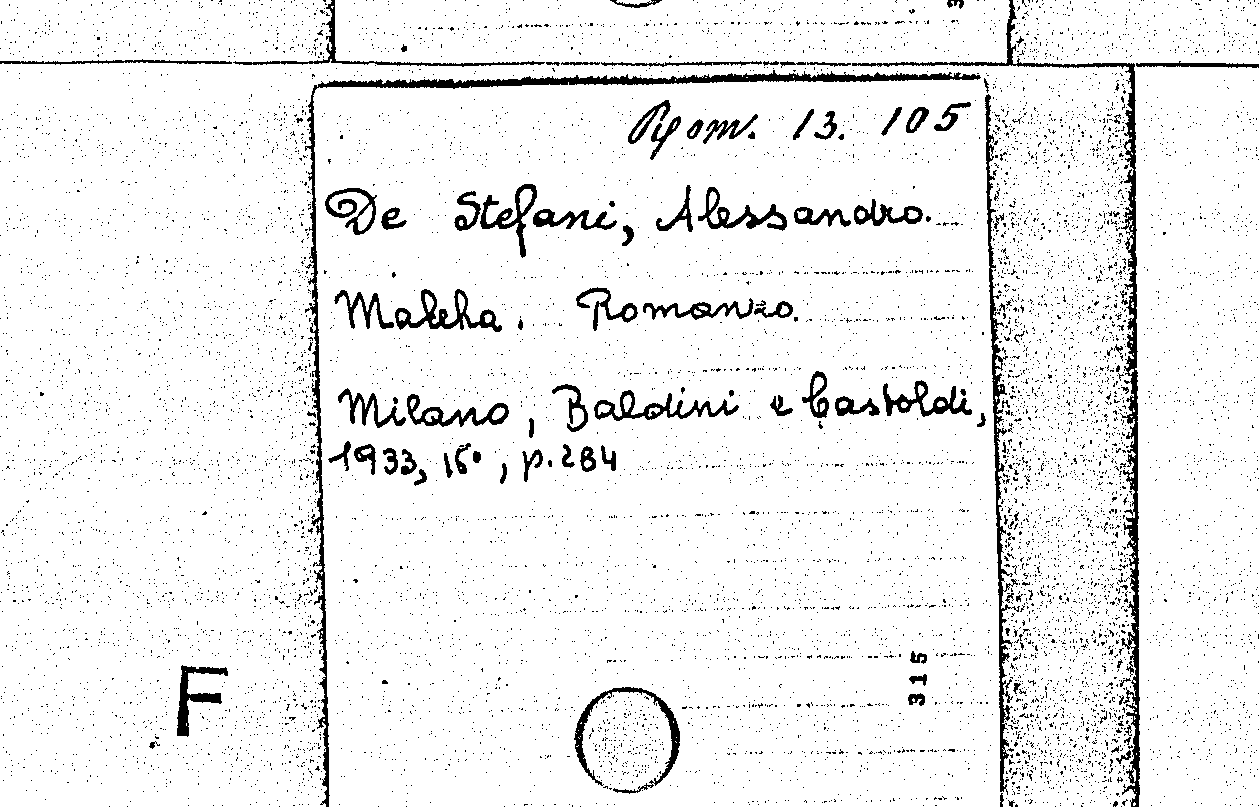 Rom. 13. 105
De Stefani, Alessandro.
Malcha. Romanzo.
Milano, Baldini e Castoldi,
1933, 16°, p. 284
315
F